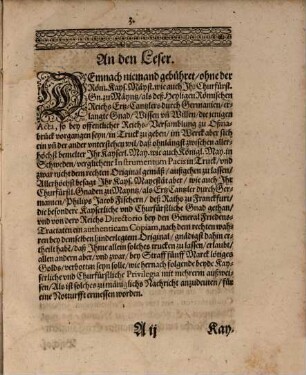 3.
An den Leser.
DEmnach niemand gebühret / ohne der
Röm. Kays. Mäyst. wie auch Ihr Churfürstl.
Gn. zu Mäyntz / als deß Heyligen Römischen
Reichs Ertz-Cantzlers durch Germanien / er-
langte Gnad / Wissen vñ Willen / dejenigen
Acta, so bey offentlicher Reichs-Versamblung zu Osna-
brück vorgangen seyn / in Truck zu geben / im Werck aber sich
ein vñ der ander unterstehen wil / daß ohnlängst zwischen aller-
höchst bemelter Ihr Kayserl. May. wie auch Königl. May. in
Schweden / verglichene Instrumentum Pacis in Truck / vnd
zwar nicht dem rechten Original gemäß / außgehen zu lassen /
Allerhöchst besagt Ihr Kays. Mayest. aber / wie auch Ihr
Churfürstl. Gnaden zu Mäyntz / als Ertz-Cantzler durch Ger-
manien / Philips Jacob Fischern / deß Raths zu Franckfurt
die besondere Kayserliche vnd Churfürstliche Gnad gethan /
vnd von dero Reichs Directorio bey den General Friedens-
Tractaten ein authenticam Copiam, nach dem rechten wah-
ren bey demselben hinderlegtem Original / gnädigst dahin er-
theilt habē / daß Ihme allein solches trucken zu lassen / erlaubt /
allen andern aber / vnd zwar / bey Straff fünff Marck lötiges
Golds / verbotten seyn solle / wie hernach folgende beyde Kay-
serliche vnd Churfürstliche Privilegia mit mehrerm außwei-
sen / Als ist solches männiglichs Nachricht anzudeuten / für
eine Notturfft ermessen worden.
A ij
Kay.